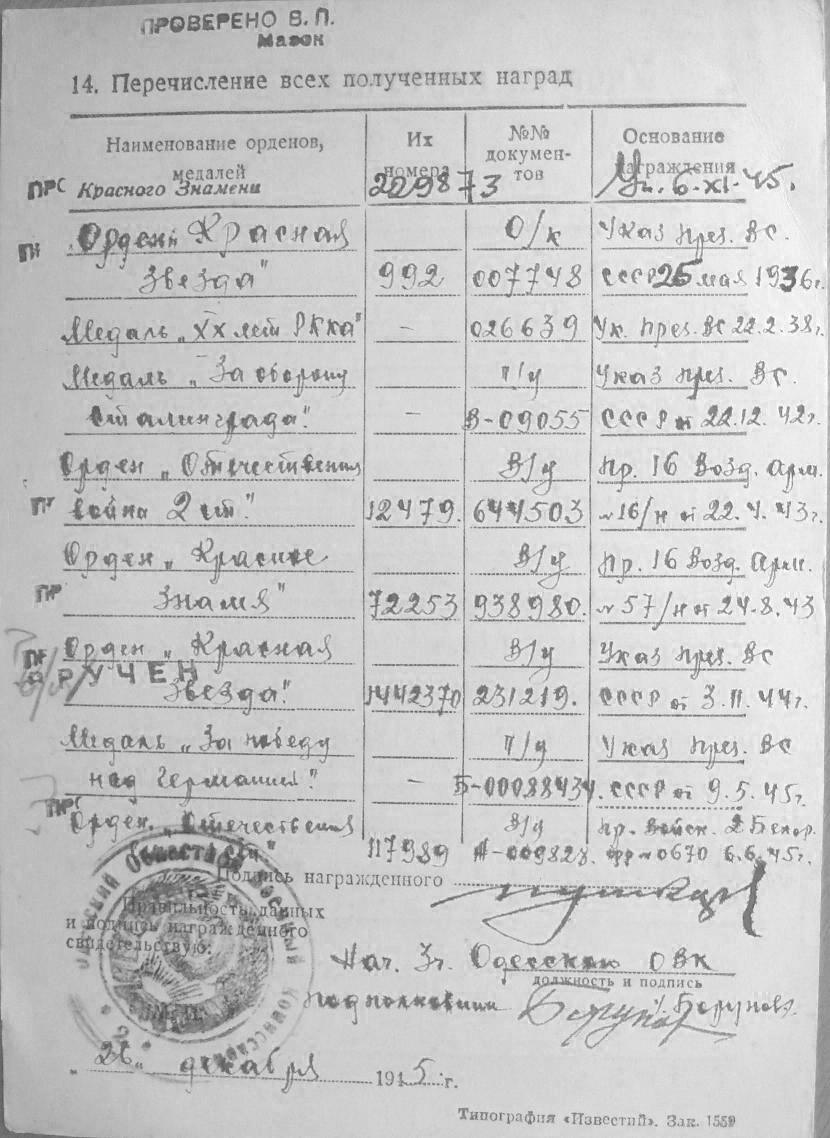 ПРОВЕРЕНО В. П.
Мазок
14. Перечисление всех полученных наград
Наименование орденов, медалей
Их номера
№№ документов
Основание награждения
ПРС Красного Знамени 229873 Ук. 6-XI-45.
„Орден Красная О/к Указ през. ВС.
Звезда" 992 007748 СССР 25 мая 1936г.
Медаль „XX лет РККА" – 026639 Ук. през. ВС 22.2.38г.
Медаль „За оборону п/у Указ през. ВС.
Сталинграда". – В-09055 СССР от 22.12.42г.
Орден „Отечественная В/у Пр. 16 Возд. Арм.
война 2 ст." 12479. 644503 №16/н от 22.4.43г.
Орден „Красное В/у Пр. 16 Возд. Арм.
ПР Знамя" 72253 938980. №57/н от 24.8.43
Орден „Красная В/у Указ през. ВС
ВРУЧЕН
Звезда". 1442370 231219. СССР от 3.11.44г.
Медаль „За победу п/у Указ през. ВС
над Германией". – Б-00088434. СССР от 9.5.45г.
ПРС
Орден „Отечественная В/у Пр. Войск. 2 Белор.
ст." 117989 А-009828. фр №0670 6.6.45г.
Подпись награжденного
Правильность данных
и подпись награжденного
свидетельствую:
Нач. 3ч. Одесского ОВК
должность и подпись
подполковник /Борунов/.
„26" декабря 1945 г.
Типография «Известий». Зак. 1559